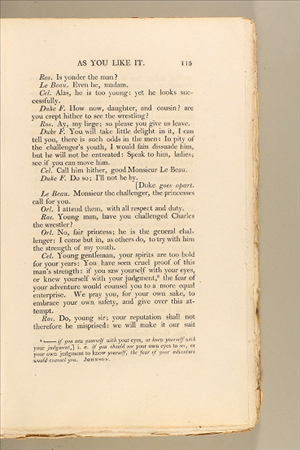 AS YOU LIKE IT. 115
Ros. Is yonder the man?
Le Beau. Even he, madam.
Cel. Alas, he is too young: yet he looks suc-
cessfully.
Duke F. How now, daughter, and cousin? are
you crept hither to see the wrestling?
Ros. Ay, my liege: so please you give us leave.
Duke F. You will take little delight in it, I can
tell you, there is such odds in the men: In pity of
the challenger's youth, I would fain dissuade him,
but he will not be entreated: Speak to him, ladies;
see if you can move him.
Cel. Call him hither, good Monsieur Le Beau.
Duke F. Do so; I'll not be by.
[Duke goes apart.
Le Beau. Monsieur the challenger, the princesses
call for you.
Orl. I attend them, with all respect and duty.
Ros. Young man, have you challenged Charles
the wrestler?
Orl. No, fair princess; he is the general chal-
lenger: I come but in, as others do, to try with him
the strength of my youth.
Cel. Young gentleman, your spirits are too bold
for your years: You have seen cruel proof of this
man's strength: if you saw yourself with your eyes,
or knew yourself with your judgment, the fear of
your adventure would counsel you to a more equal
enterprise. We pray you, for your own sake, to
embrace your own safety, and give over this at-
tempt.
Ros. Do, young sir; your reputation shall not
therefore be misprised: we will make it our suit
— if you saw yourself with your eyes, or knew yourself with
your judgment,] i. e. if you should use your own eyes to see, or
your own judgment to know yourself, the fear of your adventure
would counsel you. JOHNSON.